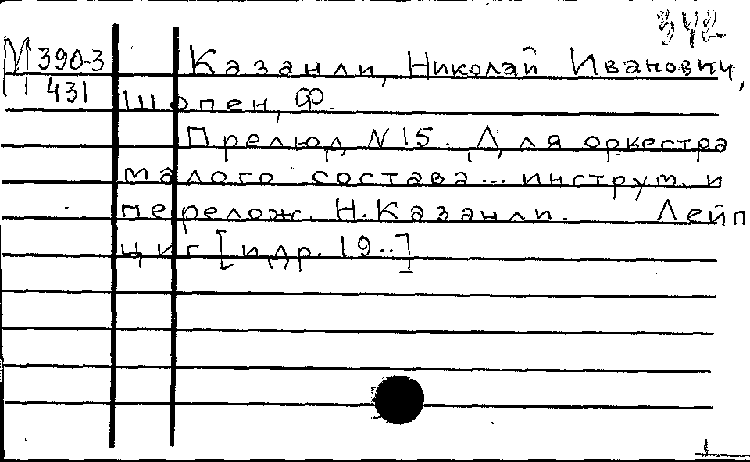 342
М 390-3 Казанли, Николай Иванович,
431 Шопен, Ф.
Прелюд N 15. Для оркестра
малого состава... инструм. и
перелож. Н. Казанли. Лейп
циг [и др. 19..]